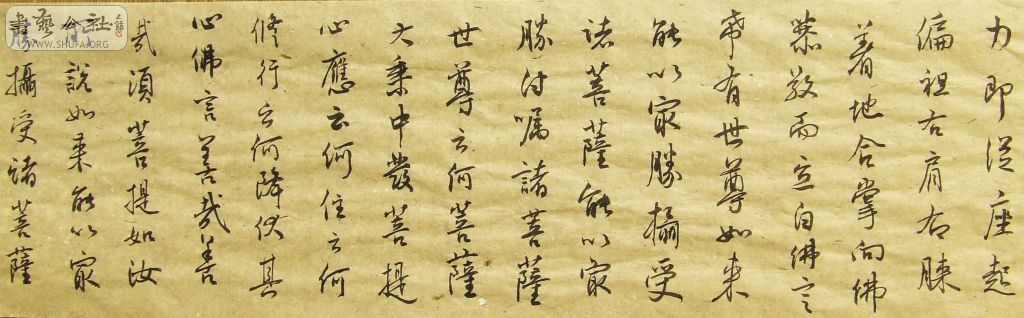 書藝公社
WWW.SHUFA.ORG
力即從座起
偏袒右肩右膝
着地合掌向佛
恭敬而立白佛言
希有世尊如来
能以冣勝攝受
諸菩薩能以冣
勝付嘱諸菩薩
世尊云何菩薩
大乘中發菩提
心應云何住云何
修行云何降伏其
心佛言善哉善
哉須菩提如汝
所說如来能以冣
勝攝受諸菩薩